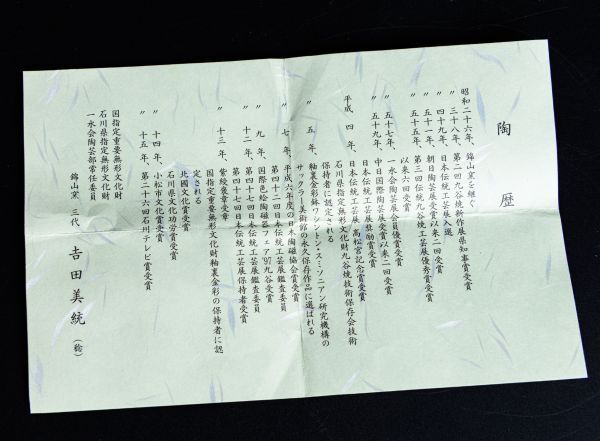 陶歴
昭和二十六年、錦山窯を継ぐ
〃 三十八年、第二回九谷焼新作展県知事賞受賞
〃 四十九年、日本伝統工芸展入選
〃 五十一年、朝日陶芸展受賞以来二回受賞
〃 五十五年、第三回伝統九谷焼工芸展優秀賞受賞
以来六回受賞
〃 五十七年、一水会陶芸展会員優賞受賞
〃 五十九年、中日国際陶芸展受賞以来二回受賞
日本伝統工芸展奨励賞受賞
平成 四年、日本伝統工芸展高松宮記念賞受賞
石川県指定無形文化財九谷焼技術保存会技術
保持者に認定される
〃 五年、釉裏金彩鉢ワシントン・スミソニアン研究機構の
サックラー美術館の永久保存作品に選ばれる
〃 七年、平成六年度の日本陶磁協会賞受賞
第四十二回日本伝統工芸展鑑査委員
〃 九年、国際色絵陶磁器フェア'97九谷受賞
〃 十二年、第四十七回日本伝統工芸展鑑査委員
第四十七回日本伝統工芸展保持者賞受賞
〃 十三年、紫綬褒章受章
国指定重要無形文化財釉裏金彩の保持者に認
定される
北國文化賞受賞
石川県文化功労賞受賞
〃 十四年、小松市文化賞受賞
〃 十五年、第二十六回石川テレビ賞受賞
国指定重要無形文化財
石川県指定無形文化財
一水会陶芸部常任委員
錦山窯 三代 吉田美統（稔）